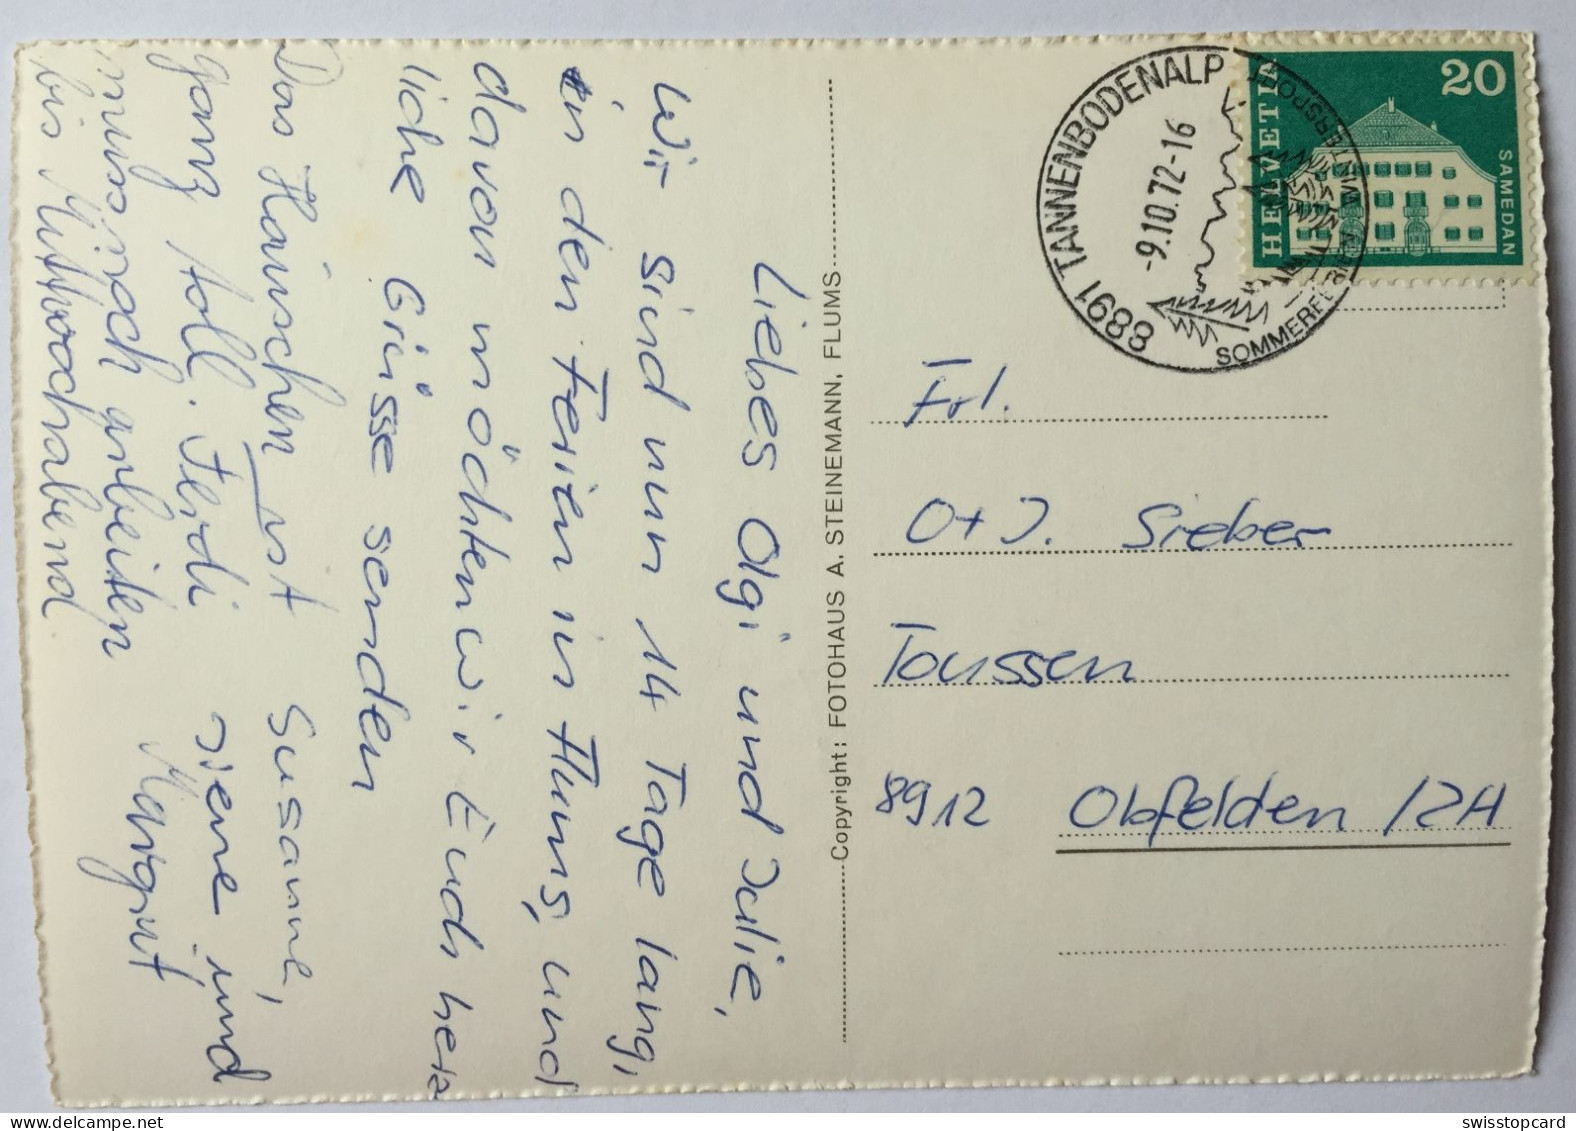 Liebes Olgi und Julie,
Wir sind nun 14 Tage lang,
in den Ferien in Flums, und
davon möchten wir Euch herz
liche Grüsse senden
Das Häuschen ist
ganz toll. Ferdi
muss noch arbeiten
bis Mittwochabend
Susanne,
und
Margrit
Copyright: FOTOHAUS A. STEINEMANN, FLUMS
8891 TANNENBODENALP
-9.10.72-16
WINTERSPORT
SOMMERFERIEN
HELVETIA
20
SAMEDAN
Frl.
O+J. Sieber
Toussen
8912 Obfelden /ZH
swisstopcard